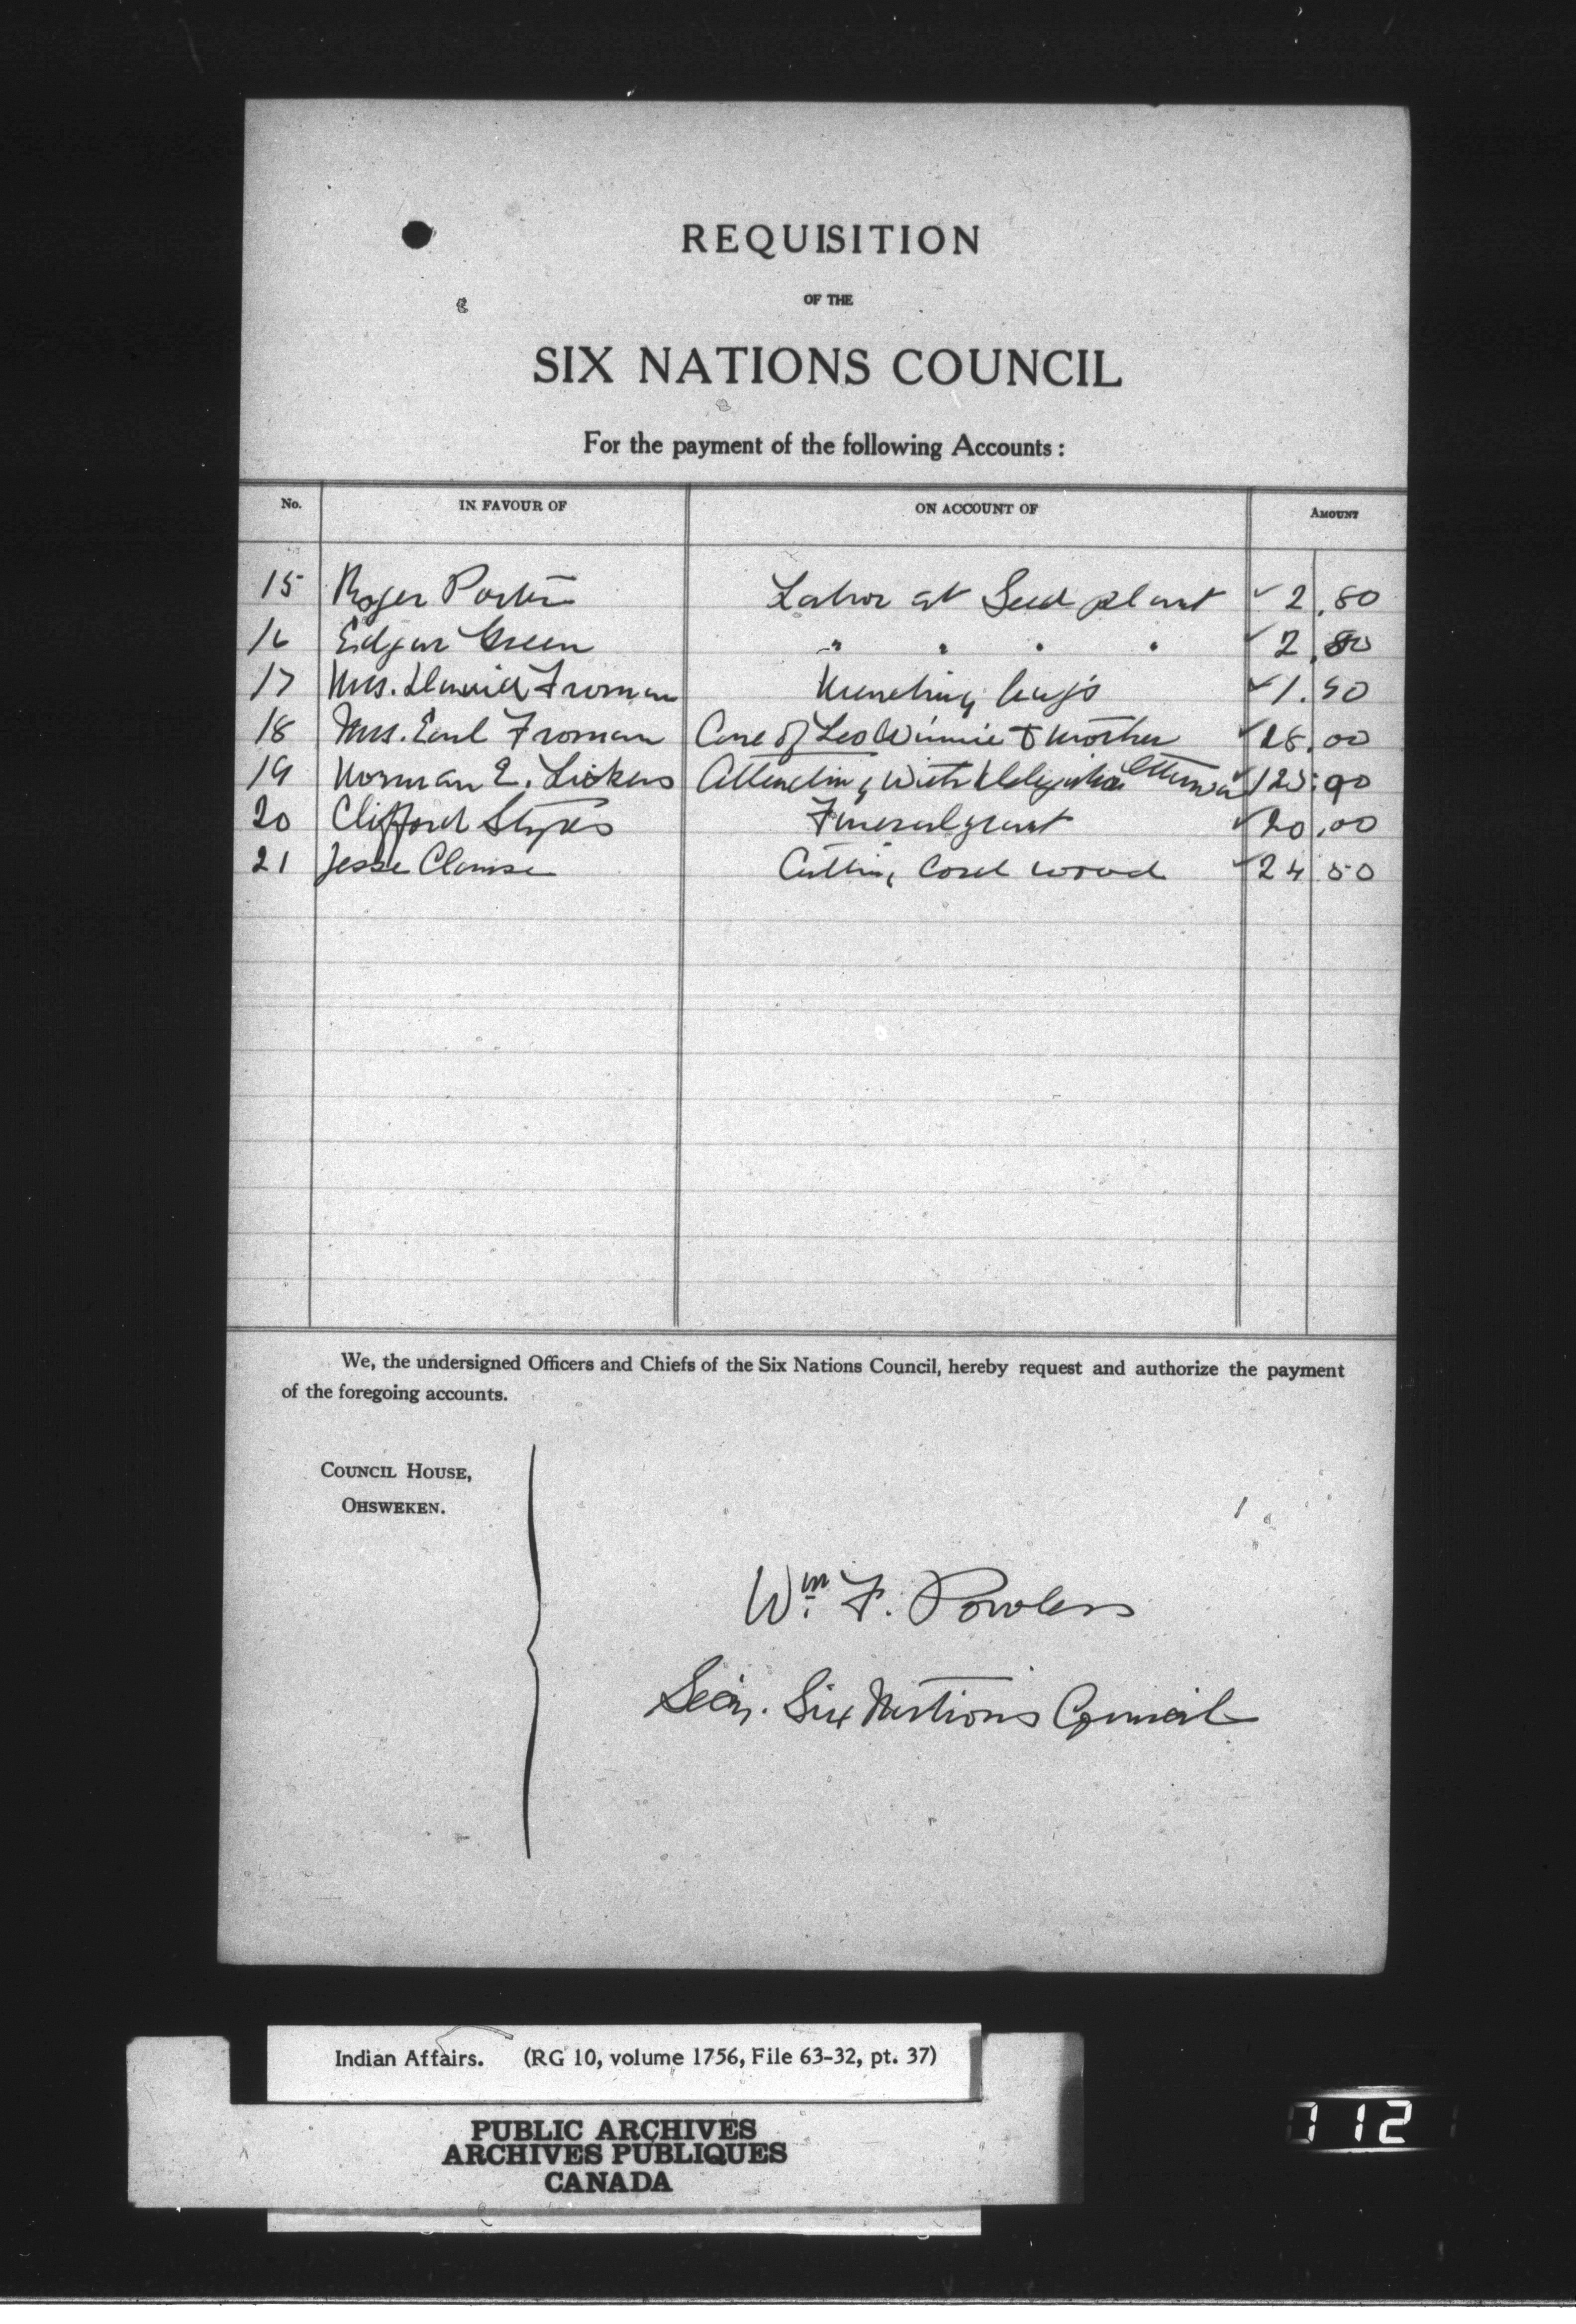 REQUISITION
OF THE
SIX NATIONS COUNCIL
For the payment of the following Accounts :
No. IN FAVOUR OF ON ACCOUNT OF AMOUNT
15 Roger Porter Labor at Seed plant ✓ 2.80
16 Edgar Green " " " " ✓ 2.80
17 Mrs. David Froman bags ✓ 1.50
18 Mrs. Earl Froman Care of Leo Winnie & Mother ✓ 28.00
19 Norman E. Lickers Attending with Delegation Ottawa ✓ 125.90
20 Clifford Styres Funeral grant ✓ 20.00
21 Jesse Clause Cutting Cord wood ✓ 24 50
We, the undersigned Officers and Chiefs of the Six Nations Council, hereby request and authorize the payment
of the foregoing accounts.
COUNCIL HOUSE,
OHSWEKEN.
Wm. F. Powless
Secy. Six Nations Council
Indian Affairs. (RG 10, volume 1756, File 63-32, pt. 37)
PUBLIC ARCHIVES
ARCHIVES PUBLIQUES
CANADA
712